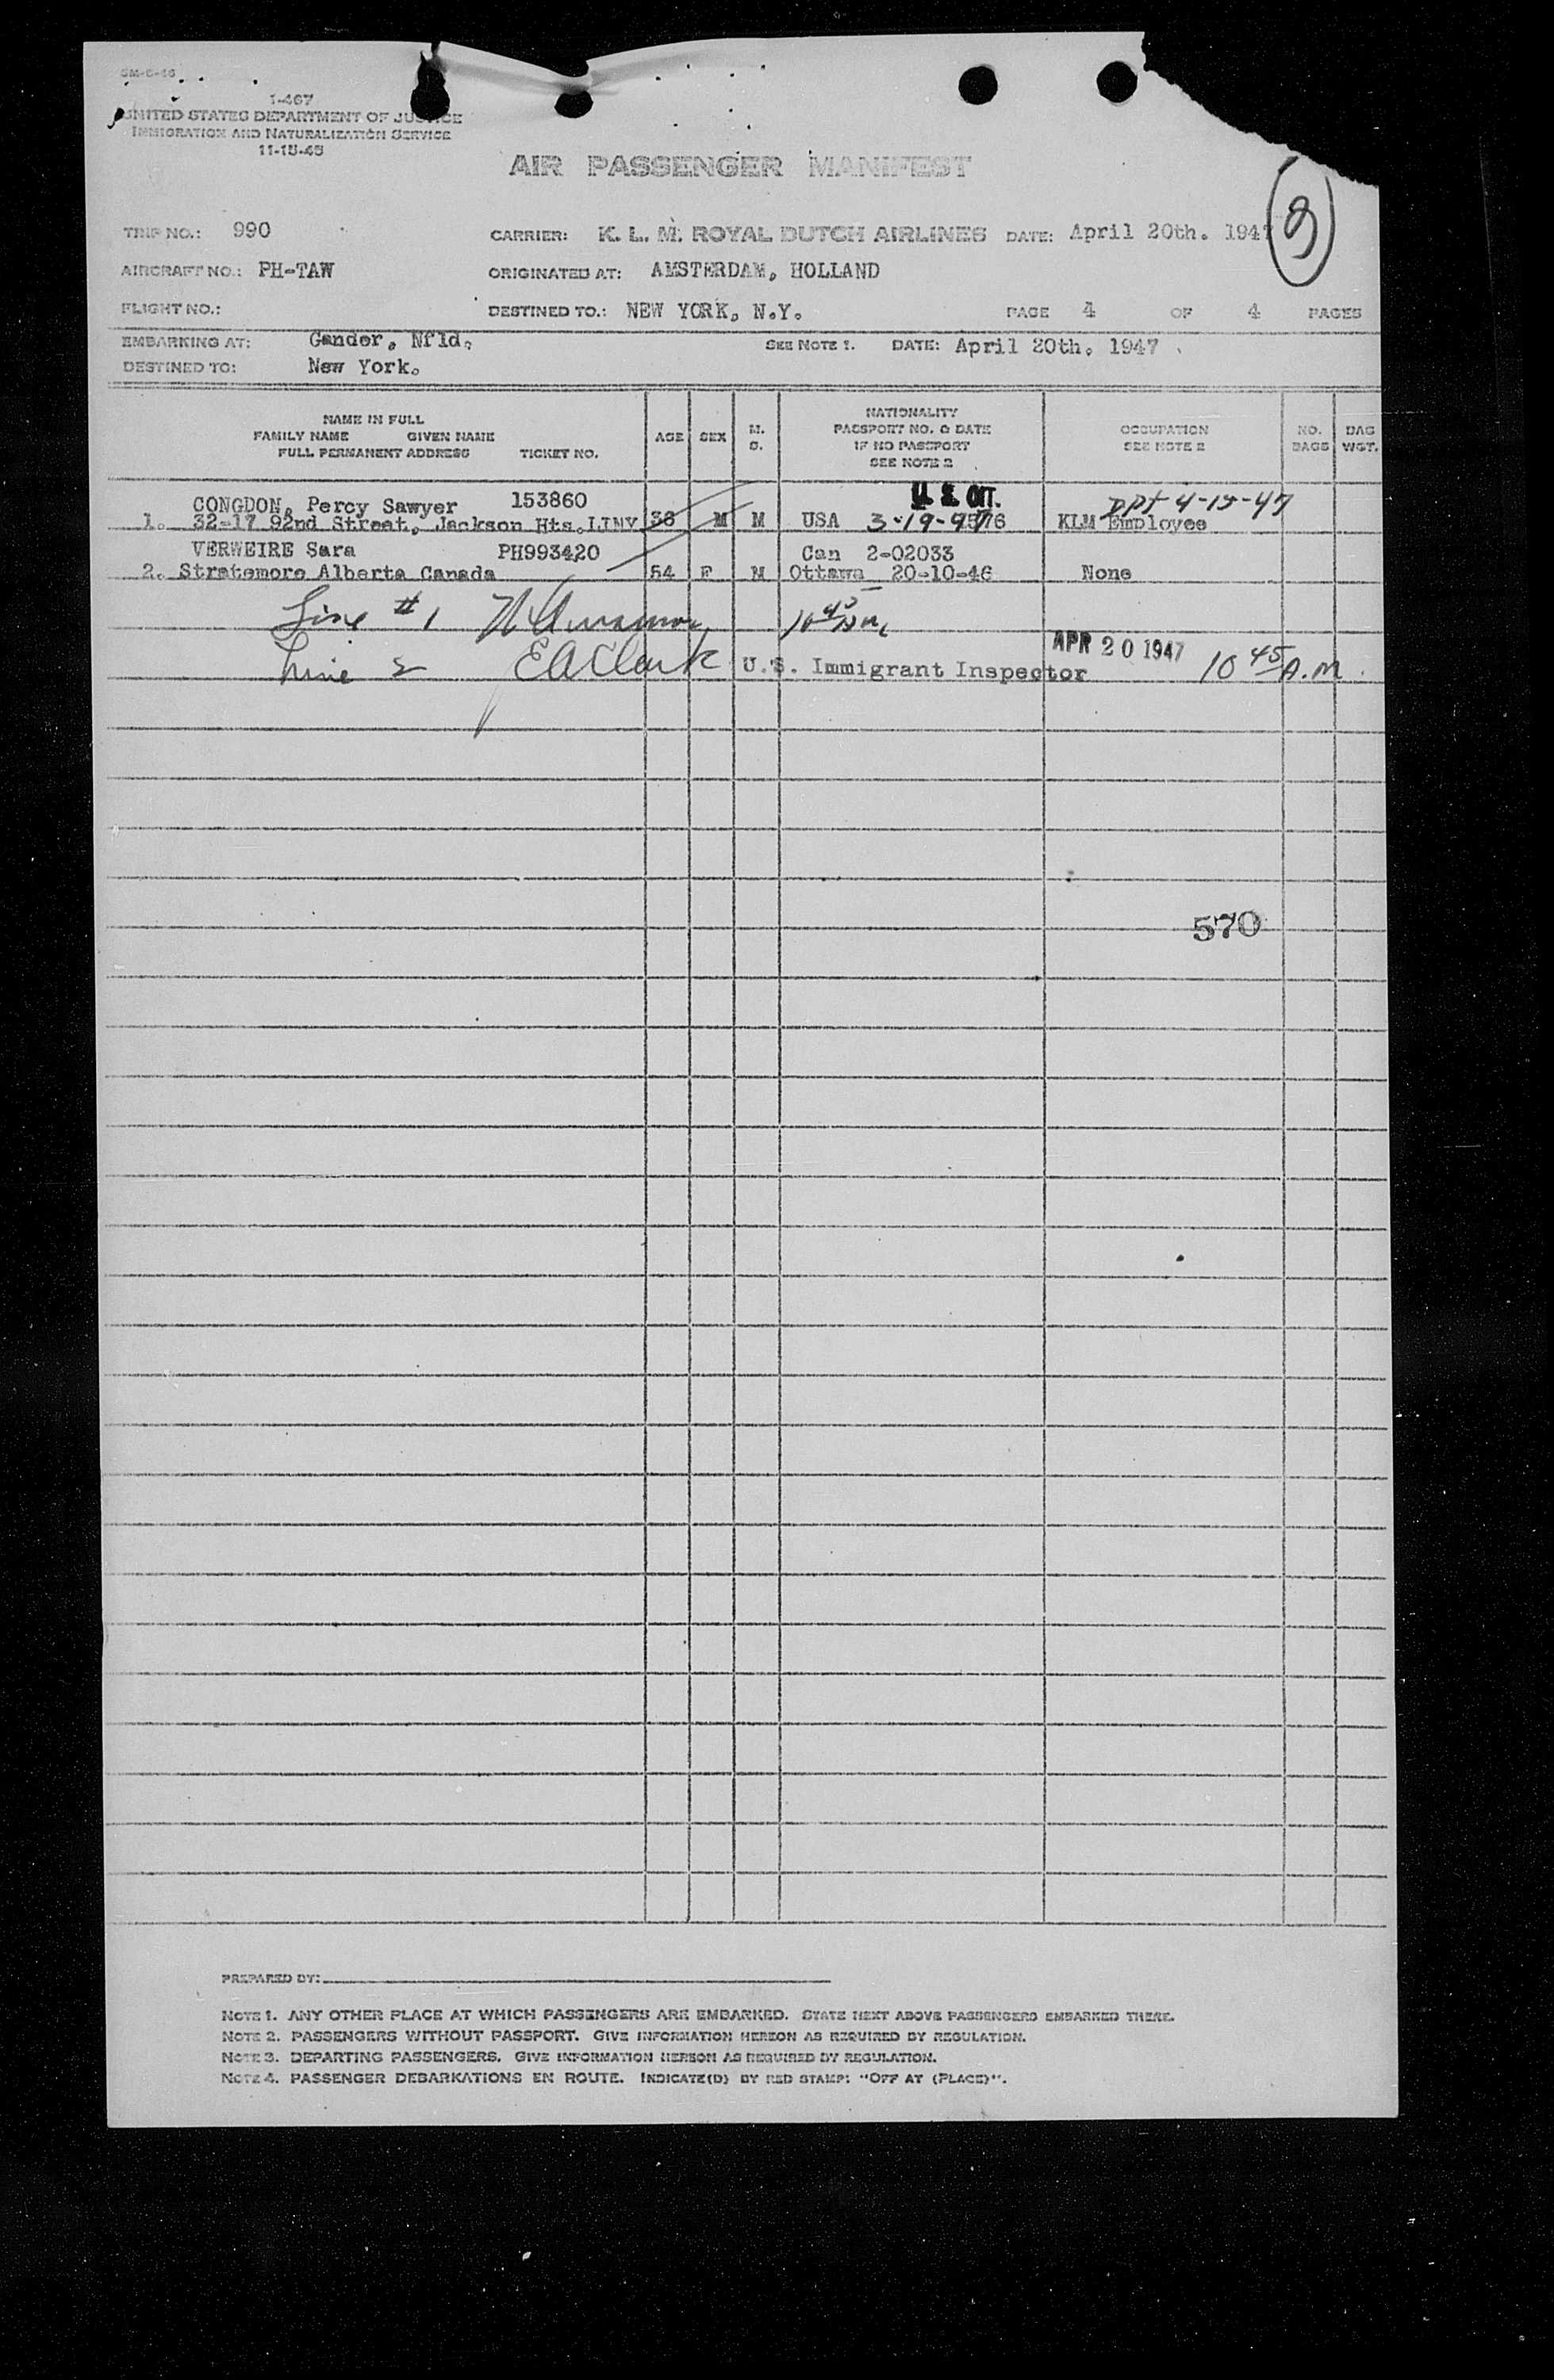 SM-6-46
I-467
UNITED STATES DEPARTMENT OF JUSTICE
IMMIGRATION AND NATURALIZATION SERVICE
11-15-45
AIR PASSENGER MANIFEST
TRIP NO.: 990
CARRIER: K. L. M. ROYAL DUTCH AIRLINES DATE: April 20th. 1947
AIRCRAFT NO.: PH-TAW
ORIGINATED AT: AMSTERDAM, HOLLAND
FLIGHT NO.:
DESTINED TO.: NEW YORK, N.Y. PAGE 4 OF 4 PAGES
EMBARKING AT: Gander, Nfld. SEE NOTE 1. DATE: April 20th. 1947
DESTINED TO: New York.
NAME IN FULL
FAMILY NAME GIVEN NAME
FULL PERMANENT ADDRESS TICKET NO.
AGE SEX M. S.
NATIONALITY
PASSPORT NO. & DATE
IF NO PASSPORT
SEE NOTE 2
OCCUPATION
SEE NOTE 2
NO. BAGS
BAG WGT.
CONGDON, Percy Sawyer 153860 U.S. CIT. Dpt 4-15-47
1. 32-17 92nd Street, Jackson Hts. LINY 36 M M USA 3-19-47 KLM Employee
VERWEIRE Sara PH993420 Can 2-02033
2. Stratemore Alberta Canada 54 F M Ottawa 20-10-46 None
Line #1 10 45 AM
Line 2 E A Clark U.S. Immigrant Inspector APR 20 1947 10 45 A.M.
570
PREPARED BY:
NOTE 1. ANY OTHER PLACE AT WHICH PASSENGERS ARE EMBARKED. STATE NEXT ABOVE PASSENGERS EMBARKED THERE.
NOTE 2. PASSENGERS WITHOUT PASSPORT. GIVE INFORMATION HEREON AS REQUIRED BY REGULATION.
NOTE 3. DEPARTING PASSENGERS. GIVE INFORMATION HEREON AS REQUIRED BY REGULATION.
NOTE 4. PASSENGER DEBARKATIONS EN ROUTE. INDICATE(D) BY RED STAMP: "OFF AT (PLACE)".